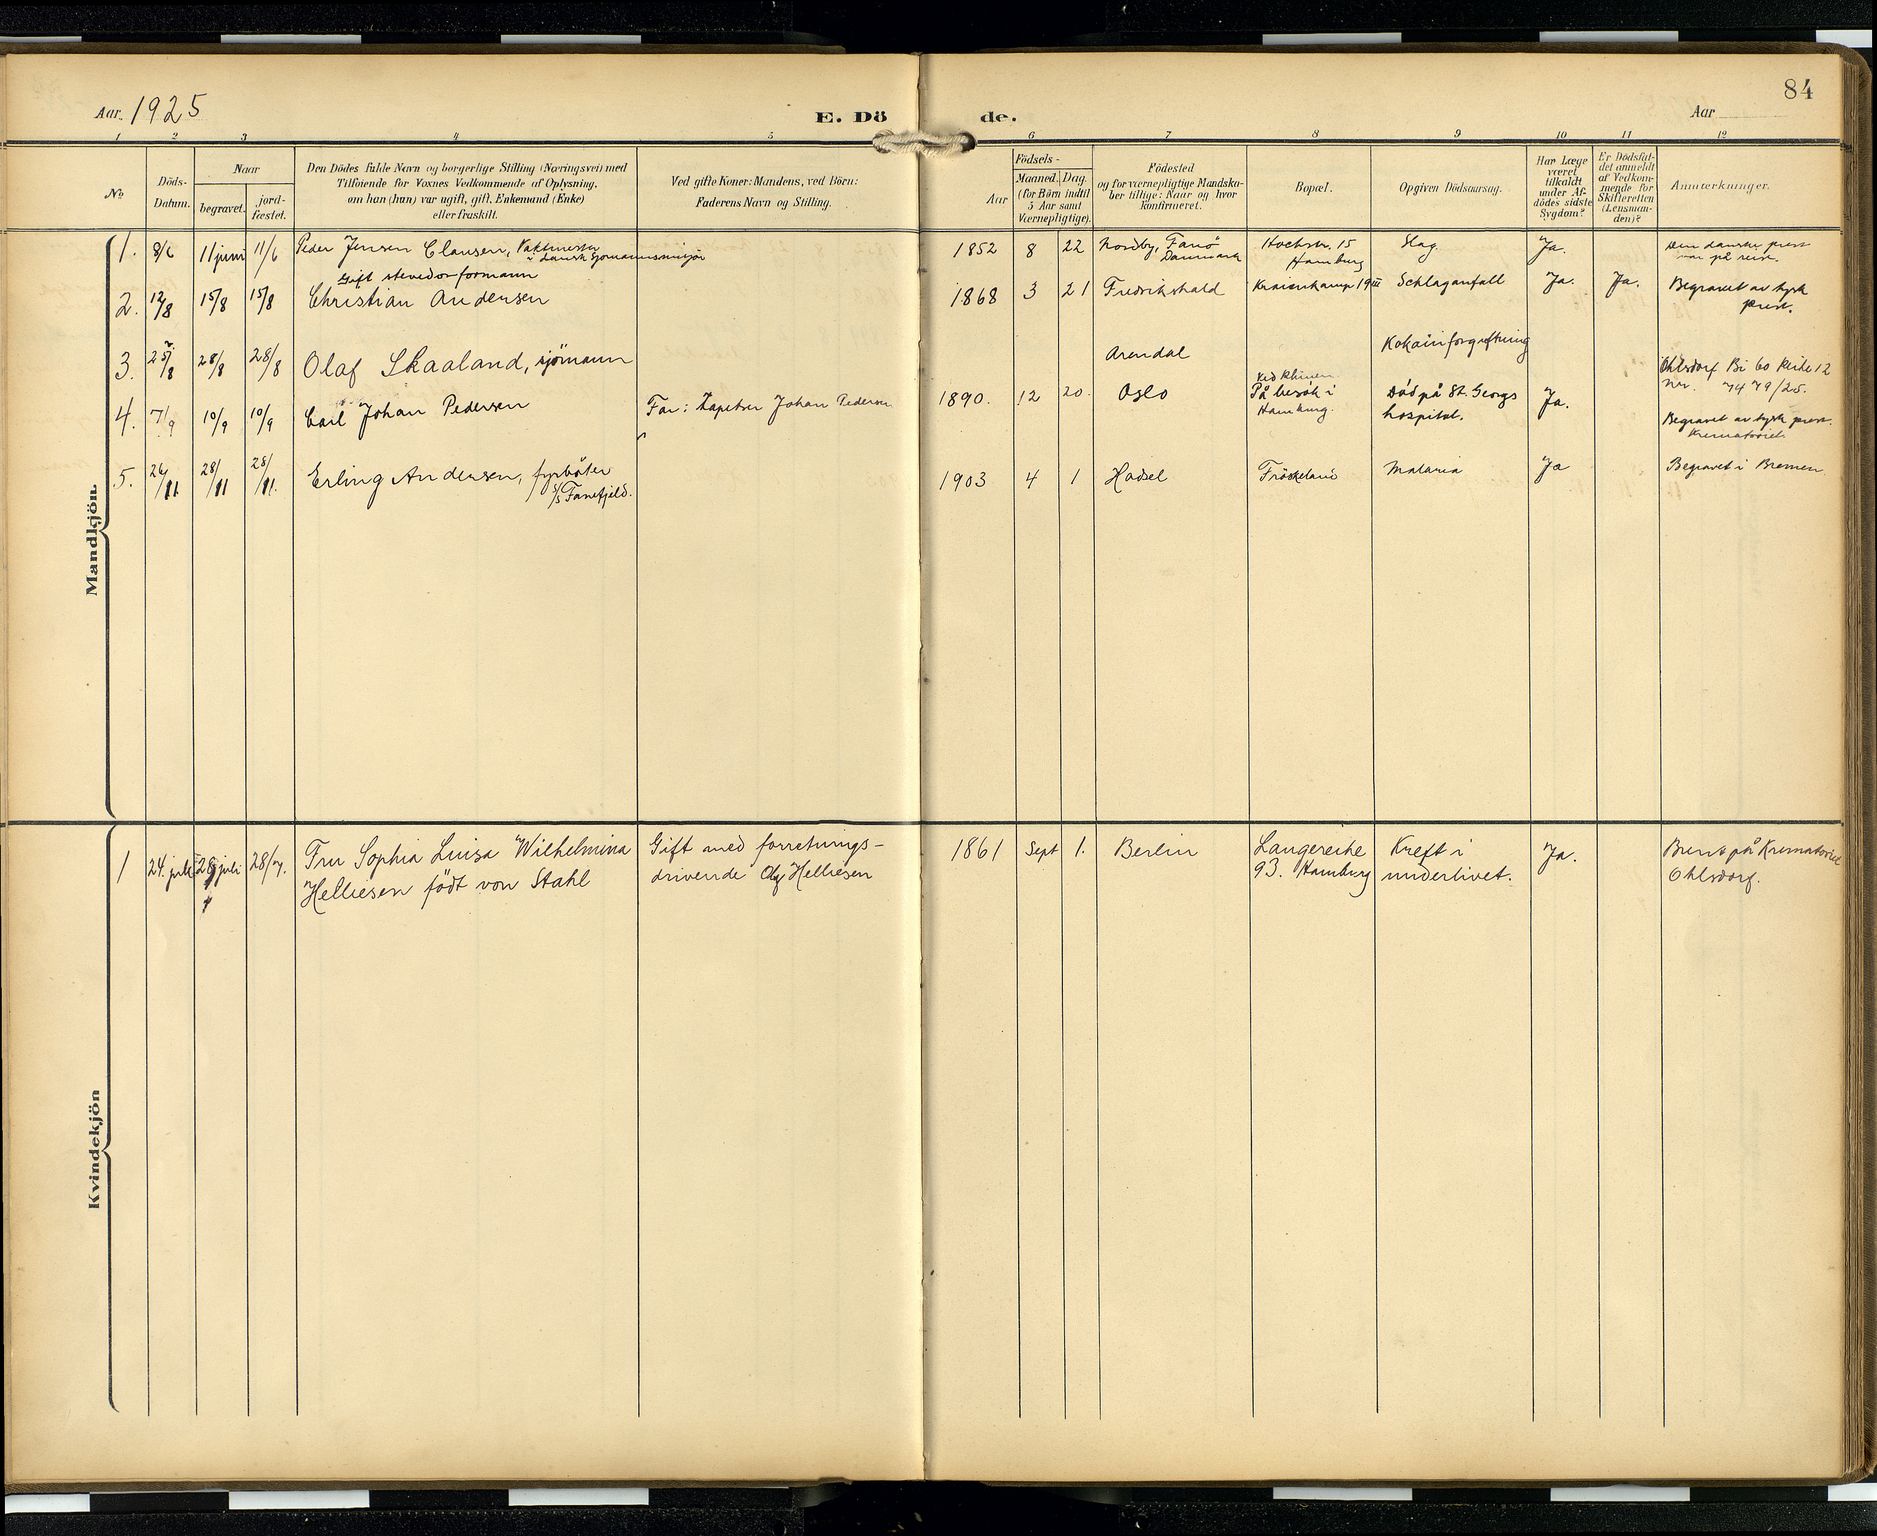 Aar. 1925
E. Dö de.
Aar
84
1 2 3 4 5 6 7 8 9 10 11 12
No.
Döds-
Datum.
Naar
begravet.
jord-
fæstet.
Den Dödes fulde Navn og borgerlige Stilling (Næringsvei) med
Tilföiende for Voxnes Vedkommende af Oplysning,
om han (hun) var ugift, gift, Enkemand (Enke)
eller fraskilt.
Ved gifte Koner: Mandens, ved Börn:
Faderens Navn og Stilling.
Födsels-
Aar
Maaned. Dag.
(for Börn indtil
5 Aar samt
Værnepligtige).
Födested
og for værnepligtige Mandska-
ber tillige: Naar og hvor
konfirmeret.
Bopæl.
Opgiven Dödsaarsag.
Har Læge
været
tilkaldt
under Af-
dödes sidste
Sygdom?
Er Dödsfal-
det anmeldt
af Vedkom-
mende for
Skifteretten
(Lensman-
den)?
Anmærkninger.
Mandkjön.
1. 8/6 11 juni 11/6 Peder Jensen Clausen, Vaktmester
v. dansk sjømannsmisjon
1852 8 22 Nordby, Fanö
Danmark
Hochstr. 15
Hamburg
Slag. Ja.
Den danske prest
var på reise.
Gift stevedorformann
2. 12/8 15/8 15/8 Christian Andensen
1868 3 21 Fredrikshald Kraienkamp 19 III Schlaganfall Ja. Ja. Begravet av tysk
prest.
3. 25/8 28/8 28/8 Olaf Skaaland, sjömann
Arendal
Kokainforgiftning
Ohlsdorf Bi 60 Reihe 12
Nr. 7479/25.
4. 7/9 10/9 10/9 Carl Johan Pedersen Far: Kapetser Johan Pedersen
1890. 12 20. Oslo
På besök i
Hamburg.
Död på St. Georgs
hospital.
Ja.
Begravet av tysk prest.
Krematoriet.
5. 26/11. 28/11 28/11. Erling Andersen, fyrböter
s/s Fanefjeld.
1903 4 1 Hadsel Fröskeland Malaria Ja Begravet i Bremen
Kvindekjön
1 24. juli 28 juli 28/7. Fru Sophia Luisa Wilhelmina
Helliesen födt von Stahl
Gift med forretnings-
drivende Olaf Helliesen
1861 Sept 1. Berlin
Langereihe
93. Hamburg
Kreft i
underlivet.
Ja.
Brent på Krematoriet
Ohlsdorf.